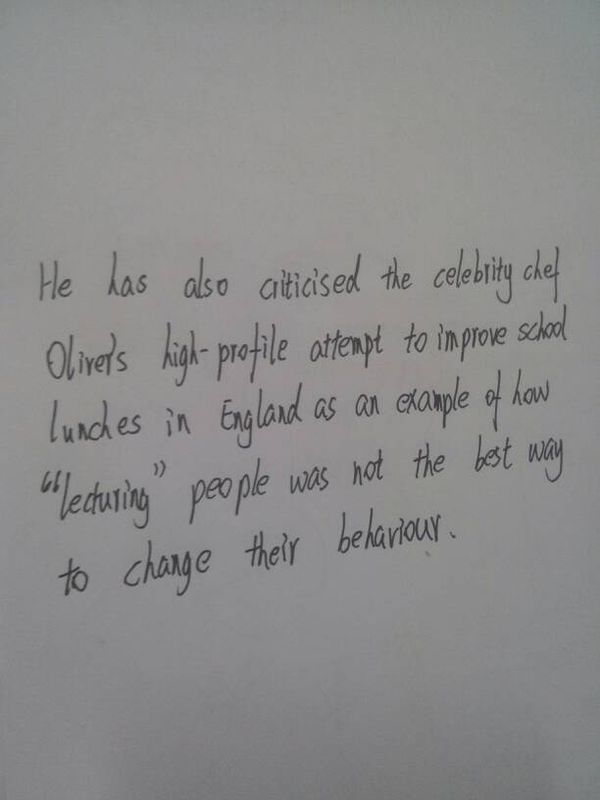 He has also criticised the celebrity chef
Oliver's high-profile attempt to improve school
lunches in England as an example of how
“lecturing” people was not the best way
to change their behaviour.